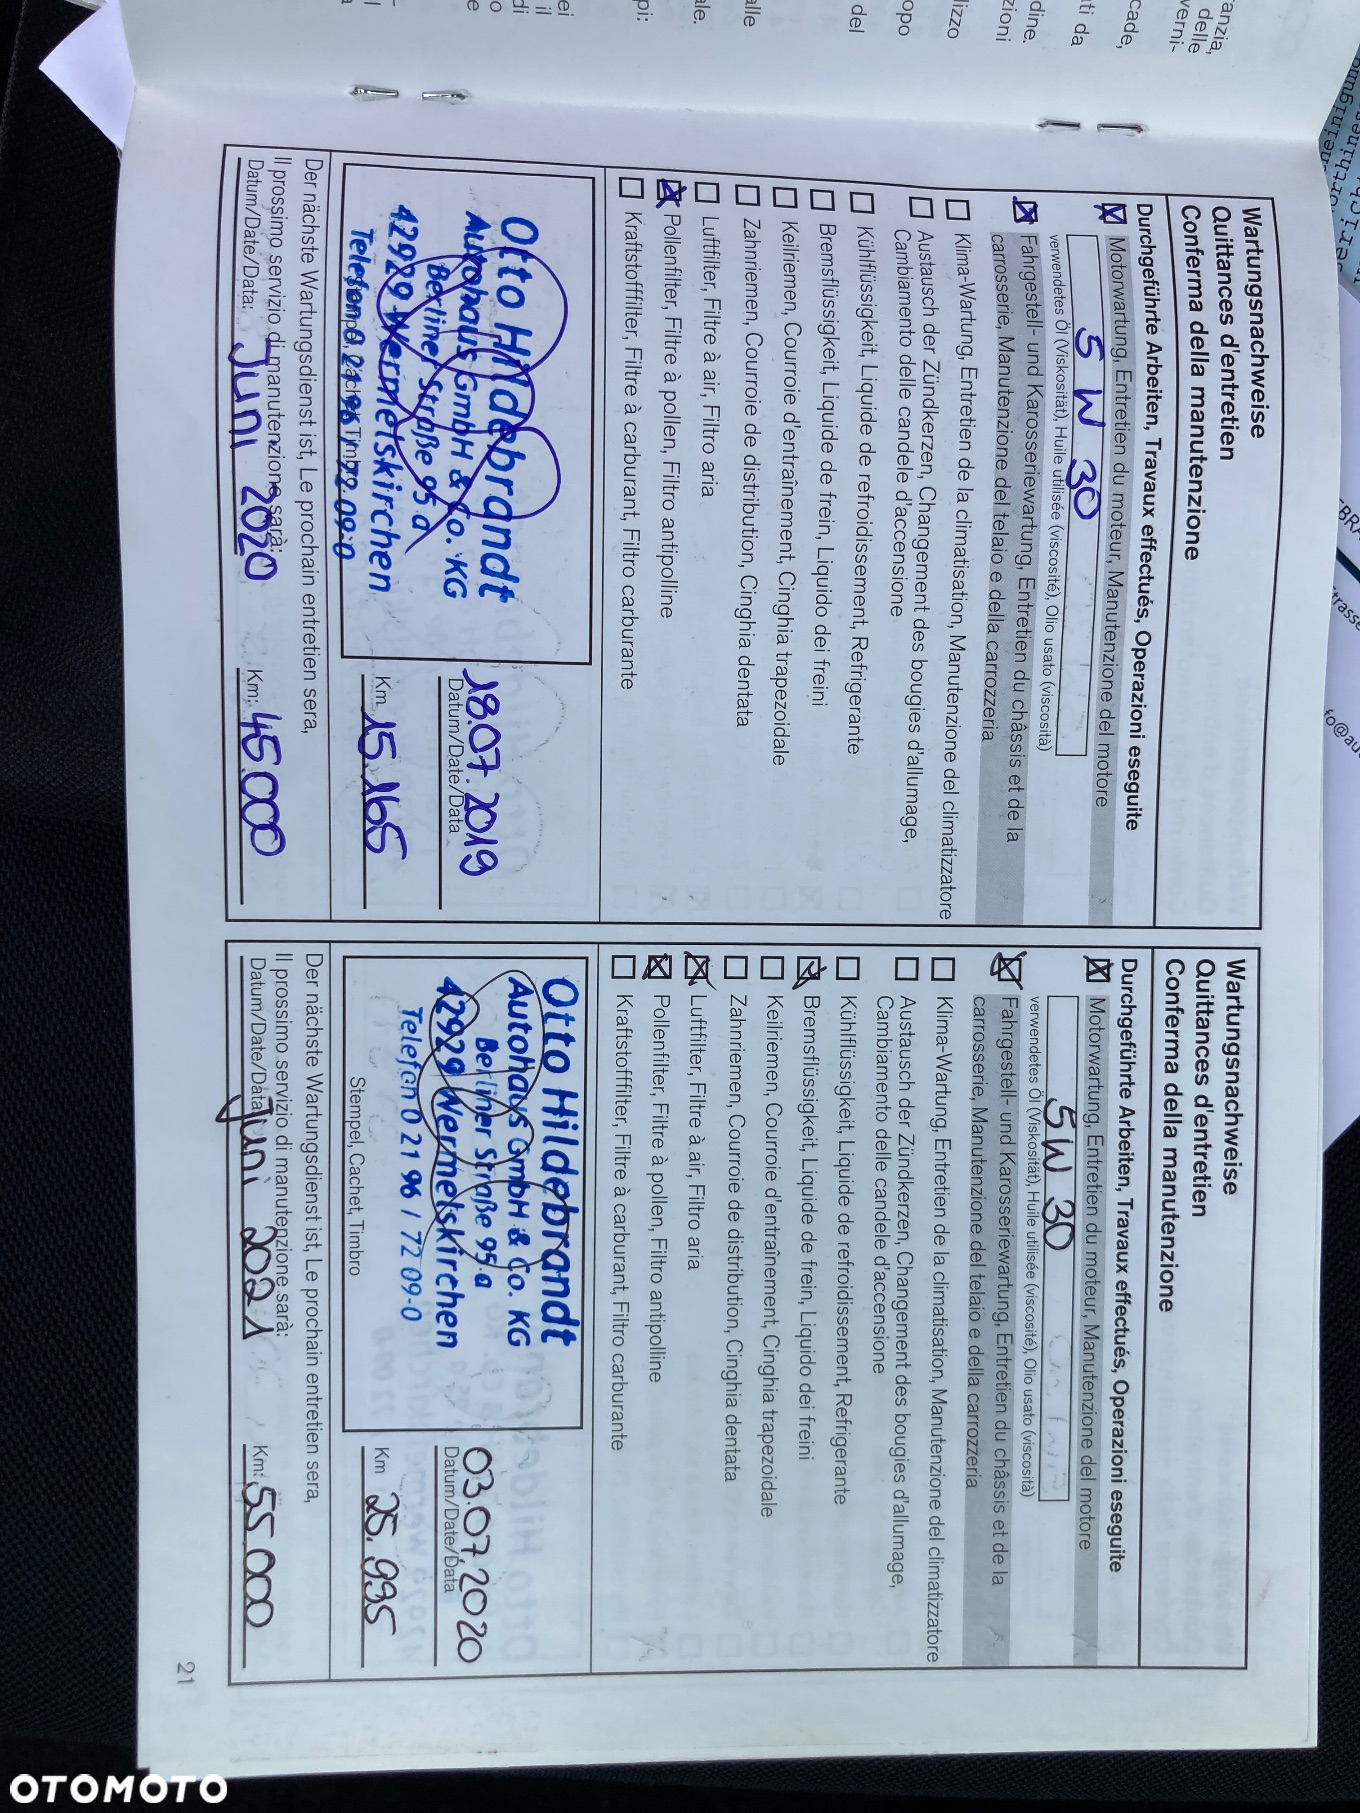 Wartungsnachweise
Quittances d'entretien
Conferma della manutenzione
Durchgeführte Arbeiten, Travaux effectués, Operazioni eseguite
Motorwartung, Entretien du moteur, Manutenzione del motore
5 W 30
verwendetes Öl (Viskosität), Huile utilisée (viscosité), Olio usato (viscosità)
Fahrgestell- und Karosseriewartung, Entretien du châssis et de la
carrosserie, Manutenzione del telaio e della carrozzeria
Klima-Wartung, Entretien de la climatisation, Manutenzione del climatizzatore
Austausch der Zündkerzen, Changement des bougies d'allumage,
Cambiamento delle candele d'accensione
Kühlflüssigkeit, Liquide de refroidissement, Refrigerante
Bremsflüssigkeit, Liquide de frein, Liquido dei freini
Keilriemen, Courroie d'entraînement, Cinghia trapezoidale
Zahnriemen, Courroie de distribution, Cinghia dentata
Luftfilter, Filtre à air, Filtro aria
Pollenfilter, Filtre à pollen, Filtro antipolline
Kraftstofffilter, Filtre à carburant, Filtro carburante
Otto Hildebrandt
Autohaus GmbH & Co. KG
Berliner Straße 95 a
42929 Wermelskirchen
Telefon 0 21 96 / 72 09-0
18.07.2019
Datum/Date/Data
Km 15.165
Der nächste Wartungsdienst ist, Le prochain entretien sera,
Il prossimo servizio di manutenzione sarà:
Datum/Date/Data: Juni 2020 Km: 45000
Wartungsnachweise
Quittances d'entretien
Conferma della manutenzione
Durchgeführte Arbeiten, Travaux effectués, Operazioni eseguite
Motorwartung, Entretien du moteur, Manutenzione del motore
5W 30
verwendetes Öl (Viskosität), Huile utilisée (viscosité), Olio usato (viscosità)
Fahrgestell- und Karosseriewartung, Entretien du châssis et de la
carrosserie, Manutenzione del telaio e della carrozzeria
Klima-Wartung, Entretien de la climatisation, Manutenzione del climatizzatore
Austausch der Zündkerzen, Changement des bougies d'allumage,
Cambiamento delle candele d'accensione
Kühlflüssigkeit, Liquide de refroidissement, Refrigerante
Bremsflüssigkeit, Liquide de frein, Liquido dei freini
Keilriemen, Courroie d'entraînement, Cinghia trapezoidale
Zahnriemen, Courroie de distribution, Cinghia dentata
Luftfilter, Filtre à air, Filtro aria
Pollenfilter, Filtre à pollen, Filtro antipolline
Kraftstofffilter, Filtre à carburant, Filtro carburante
Otto Hildebrandt
Autohaus GmbH & Co. KG
Berliner Straße 95 a
42929 Wermelskirchen
Telefon 0 21 96 / 72 09-0
Stempel, Cachet, Timbro
03.07.2020
Datum/Date/Data
Km 25.995
Der nächste Wartungsdienst ist, Le prochain entretien sera,
Il prossimo servizio di manutenzione sarà:
Datum/Date/Data: Juni 2021 Km: 55.000
21
OTOMOTO